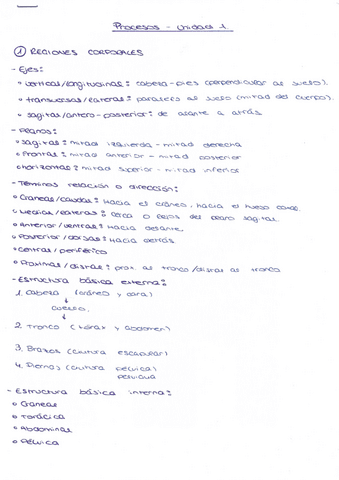 Procesos - Unidad 1
① REGIONES CORPORALES
- Ejes:
• vertical/longitudinal: cabeza-pies (perpendicular al suelo).
• transversal/lateral: paralelo al suelo (mitad del cuerpo).
• sagital/antero-posterior: de delante a atrás
- Planos:
• sagital: mitad izquierda - mitad derecha
• Frontal: mitad anterior - mitad posterior
• horizontal: mitad superior - mitad inferior
- Términos relación o dirección:
• Craneal/caudal: Hacia el cráneo, hacia el hueso
• Medial/lateral: cerca o lejos del plano sagital.
• Anterior/ventral: Hacia delante.
• Posterior/dorsal: Hacia detrás
• Central/periférico
• Proximal/distal: prox. al tronco/distal al tronco.
- Estructura básica externa:
1. Cabeza (cráneo y cara)
↓
cuello.
↓
2. Tronco (tórax y abdomen)
3. Brazos (cintura escapular)
4. Piernas (cintura pélvica)
pelviana
- Estructura básica interna:
• Craneal
• Torácica
• Abdominal
• Pélvica